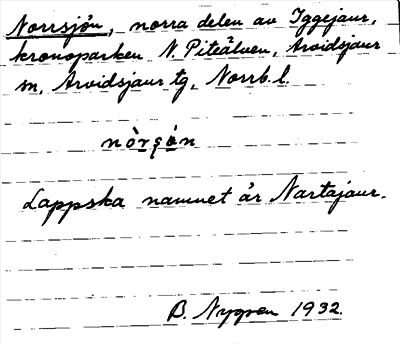 Norrsjön, norra delen av Iggejaur,
kronoparken N. Piteälven, Arvidsjaur
sn, Arvidsjaur tg, Norrb. l.
nòrʂòn
Lappska namnet är Nartajaur.
B. Nygren 1932.